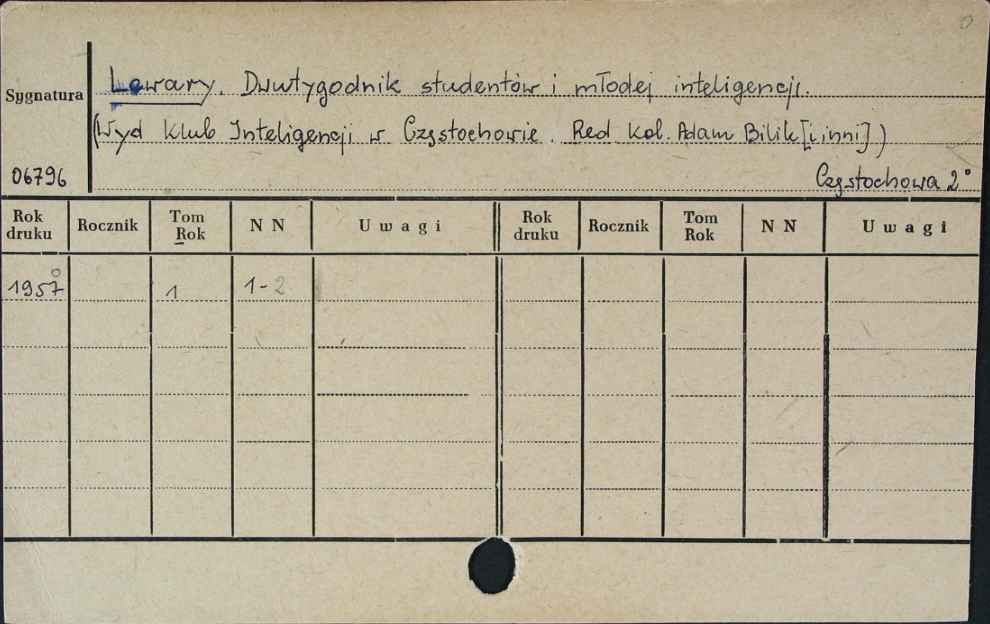 Lewary. Dwutygodnik studentów i młodej inteligencji.
Sygnatura
(Wyd Klub Inteligencji w Częstochowie. Red kol. Adam Bilik [i inni])
06796
Częstochowa 2°
Rok druku Rocznik Tom Rok N N Uwagi Rok druku Rocznik Tom Rok N N Uwagi
1957 1 1-2